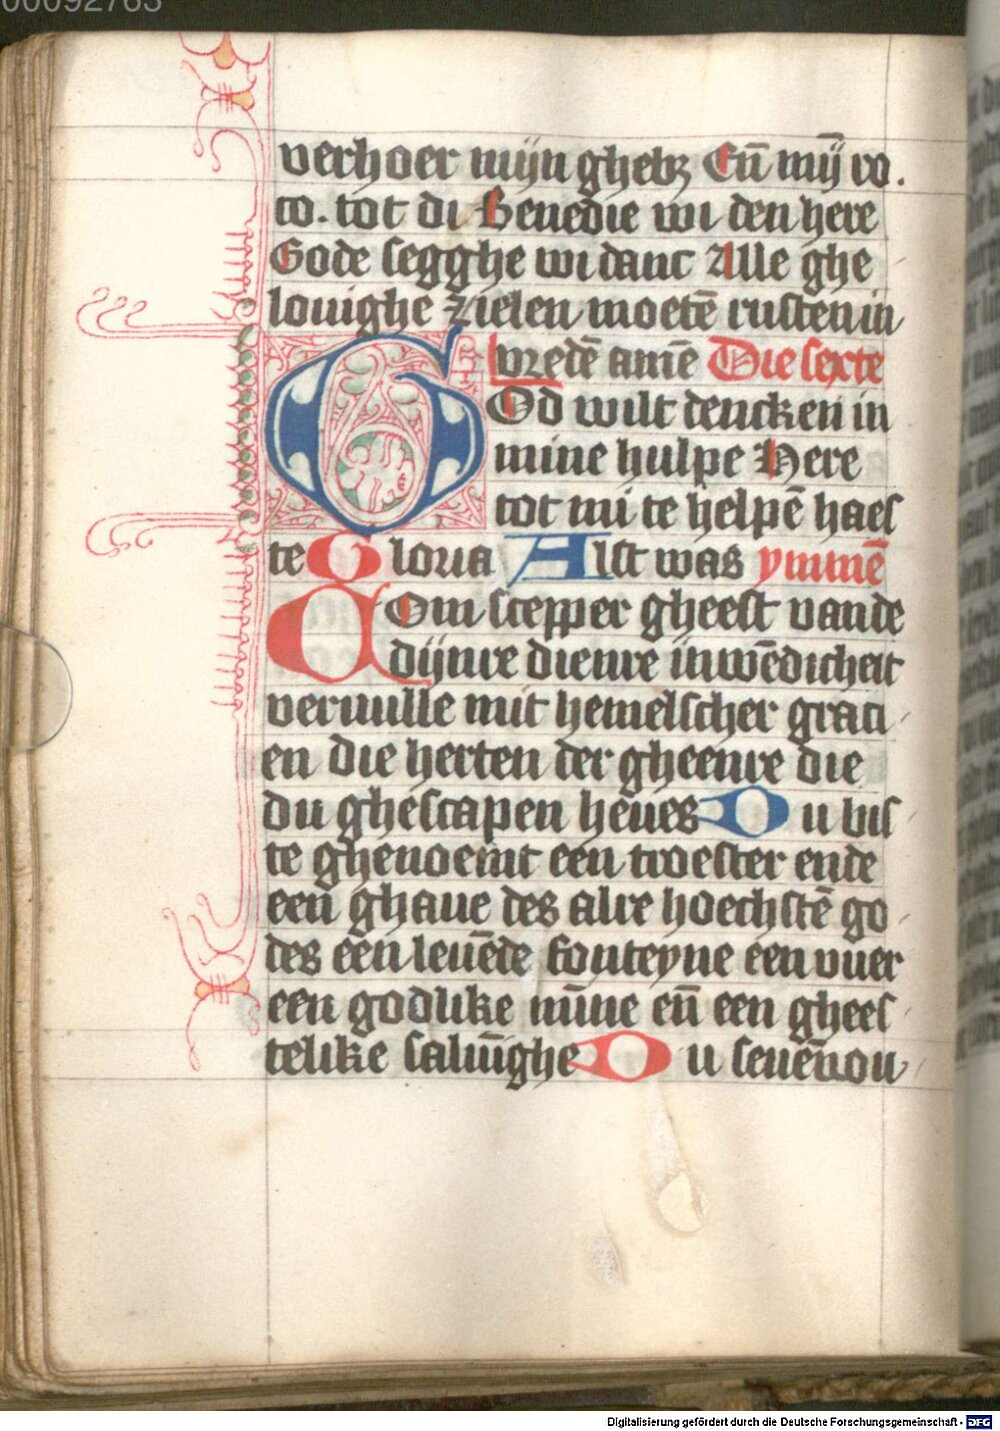 00092763
verhoer mijn ghebꝫ Eñ mij̄ ro.
co. tot di Benedie wi den here
Gode segghe wi danc Alle ghe
louighe zielen moetē rusten in
vredē amē Die sexte
God wilt dencken in
mine hulpe Here
tot mi te helpē haes
te Gloria Alst was ymmē
Com scepper gheest vande
dijnre dienre inwēdicheit
veruulle mit hemelscher graci
en die herten der gheenre die
du ghescapen heues Du bis
te ghenoemt een troester ende
een ghaue des alre hoechstē go
des een leuēde fonteyne een vuer
een godlike mīne eñ een ghees
telike saluīghe Du seuēuou
Digitalisierung gefördert durch die Deutsche Forschungsgemeinschaft - DFG